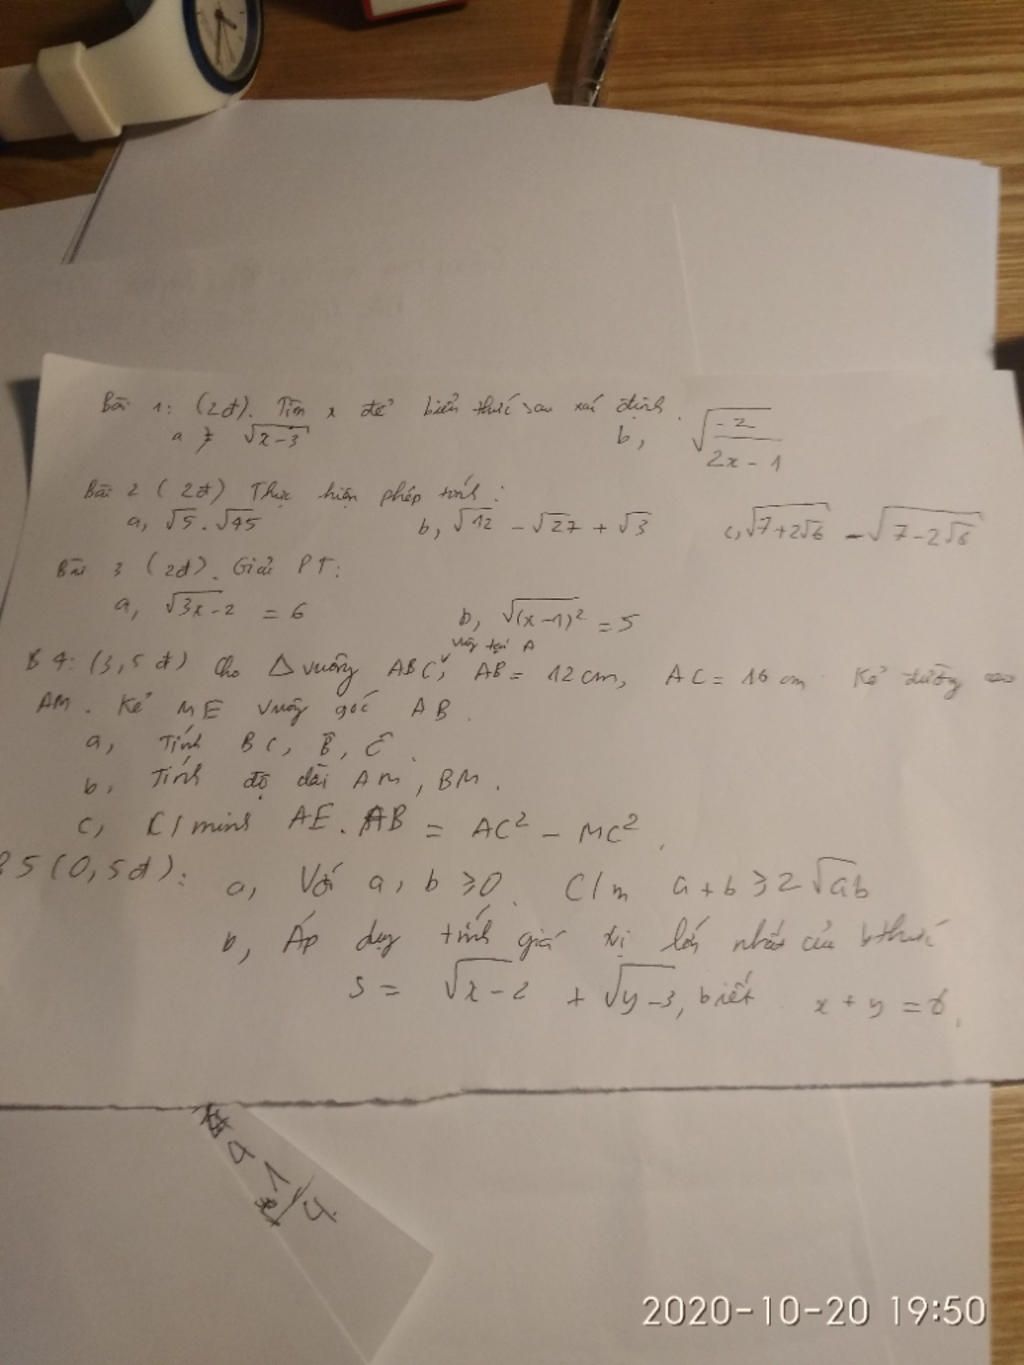 Bài 1: (2đ). Tìm x để biểu thức sau xác định.
a, √(x-3) b, √(-2/(2x-1))
Bài 2 (2đ) Thực hiện phép tính:
a, √5.√45 b, √12 - √27 + √3 c, √(7+2√6) - √(7-2√6)
Bài 3 (2đ). Giải PT:
a, √(3x-2) = 6 b, √((x-1)²) = 5
vuông tại A
B4: (3,5đ) Cho Δ vuông ABC, AB = 12cm, AC = 16cm. Kẻ đường cao
AM. Kẻ ME vuông góc AB.
a, Tính BC, B̂, Ĉ.
b, Tính độ dài AM, BM.
c, C/minh AE.AB = AC² - MC².
B5 (0,5đ): a, Với a, b ≥0. C/m a+b ≥ 2√ab
b, Áp dụng tính giá trị lớn nhất của bthức
S = √(x-2) + √(y-3), biết x + y = 6.
4
1
4
2020-10-20 19:50